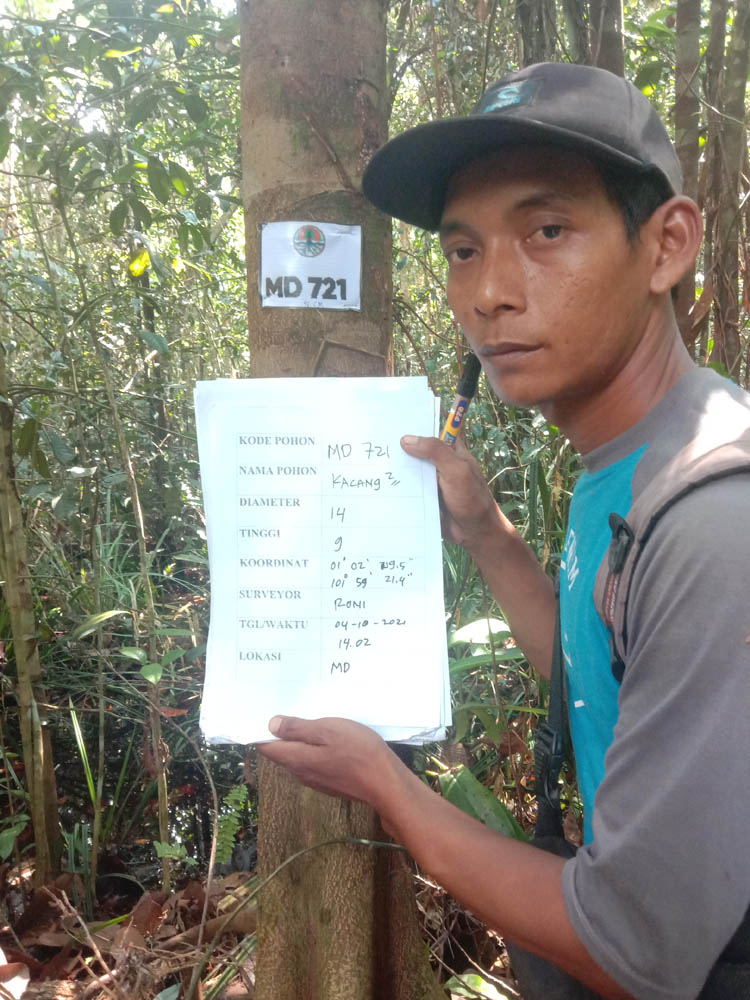 MD 721
KODE POHON MD 721
NAMA POHON KACANG²
DIAMETER 14
TINGGI 9
KOORDINAT 01° 02' 49.5"
101° 59' 21.4"
SURVEYOR RONI
TGL/WAKTU 04-10-2021
14.02
LOKASI MD